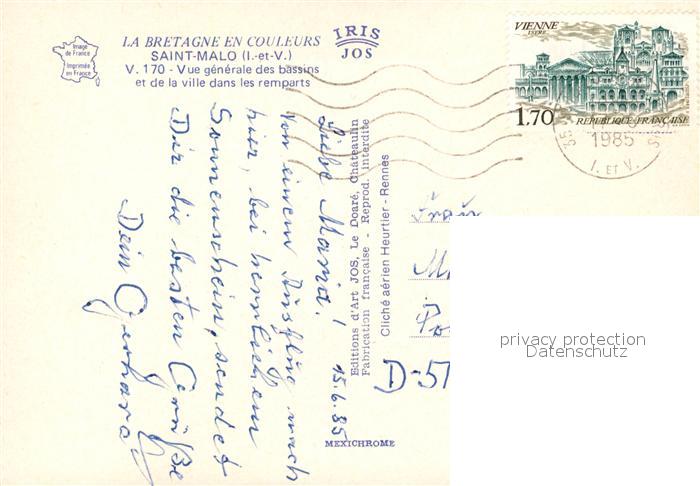 Image
de France
Imprimée
en France
LA BRETAGNE EN COULEURS
SAINT-MALO (I.-et-V.)
V. 170 - Vue générale des bassins
et de la ville dans les remparts
IRIS
JOS
VIENNE
ISÈRE
1.70
REPUBLIQUE FRANÇAISE
1985
I. ET V.
15.6.85
Liebe Maria!
Von einem Ausflug nach
hier, bei herrlichem
Sonnenschein, sendet
Dir die besten Grüße
Dein Gerhard
Editions d'Art JOS, Le Doaré, Châteaulin
Fabrication française - Reprod. Interdite
Cliché aérien Heurtier - Rennes
MEXICHROME
Frau
D-51
privacy protection
Datenschutz